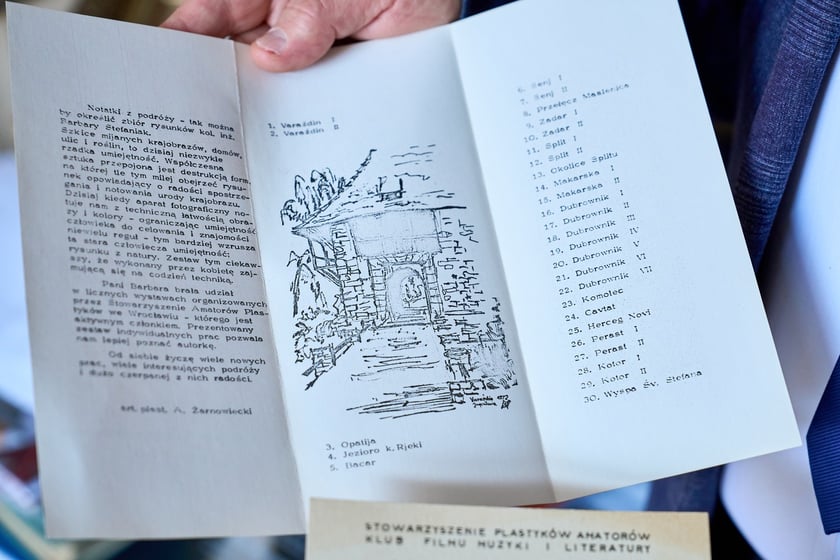 Notatki z podróży - tak można
by określić zbiór rysunków kol. inż.
Barbary Stefaniak.
Szkice mijanych krajobrazów, domów,
ulic i roślin, to dzisiaj niezwykle
rzadka umiejętność. Współczesna
sztuka przepojona jest destrukcją form,
na której tle tym milej obejrzeć rysu-
nek opowiadający o radości spostrze-
gania i notowania urody krajobrazu.
Dzisiaj kiedy aparat fotograficzny no-
tuje nam z techniczną łatwością obra-
zy i kolory - ograniczając umiejętność
człowieka do celowania i znajomości
niewielu reguł - tym bardziej wzrusza
ta stara człowiecza umiejętność;
rysunku z natury. Zestaw tym ciekaw-
szy, że wykonany przez kobietę zaj-
mującą się na codzień techniką.
Pani Barbara brała udział
w licznych wystawach organizowanych
przez Stowarzyszenie Amatorów Plas-
tyków we Wrocławiu - którego jest
aktywnym członkiem. Prezentowany
zestaw indywidualnych prac pozwala
nam lepiej poznać autorkę.
Od siebie życzę wiele nowych
prac, wiele interesujących podróży
i dużo czerpanej z nich radości.
art. plast. A. Żarnowiecki
1. Varaždin I
2. Varaždin II
3. Opatija
4. Jezioro k. Rjeki
5. Bacar
6. Senj I
7. Senj II
8. Przełęcz Maslenica
9. Zadar I
10. Zadar II
11. Split I
12. Split II
13. Okolice Splitu
14. Makarska I
15. Makarska II
16. Dubrownik I
17. Dubrownik II
18. Dubrownik III
19. Dubrownik IV
20. Dubrownik V
21. Dubrownik VI
22. Dubrownik VII
23. Komolec
24. Cavtat
25. Herceg Novi
26. Perast I
27. Perast II
28. Kotor I
29. Kotor II
30. Wyspa Św. Stefana
STOWARZYSZENIE PLASTYKÓW AMATORÓW
KLUB FILMU MUZYKI I LITERATURY